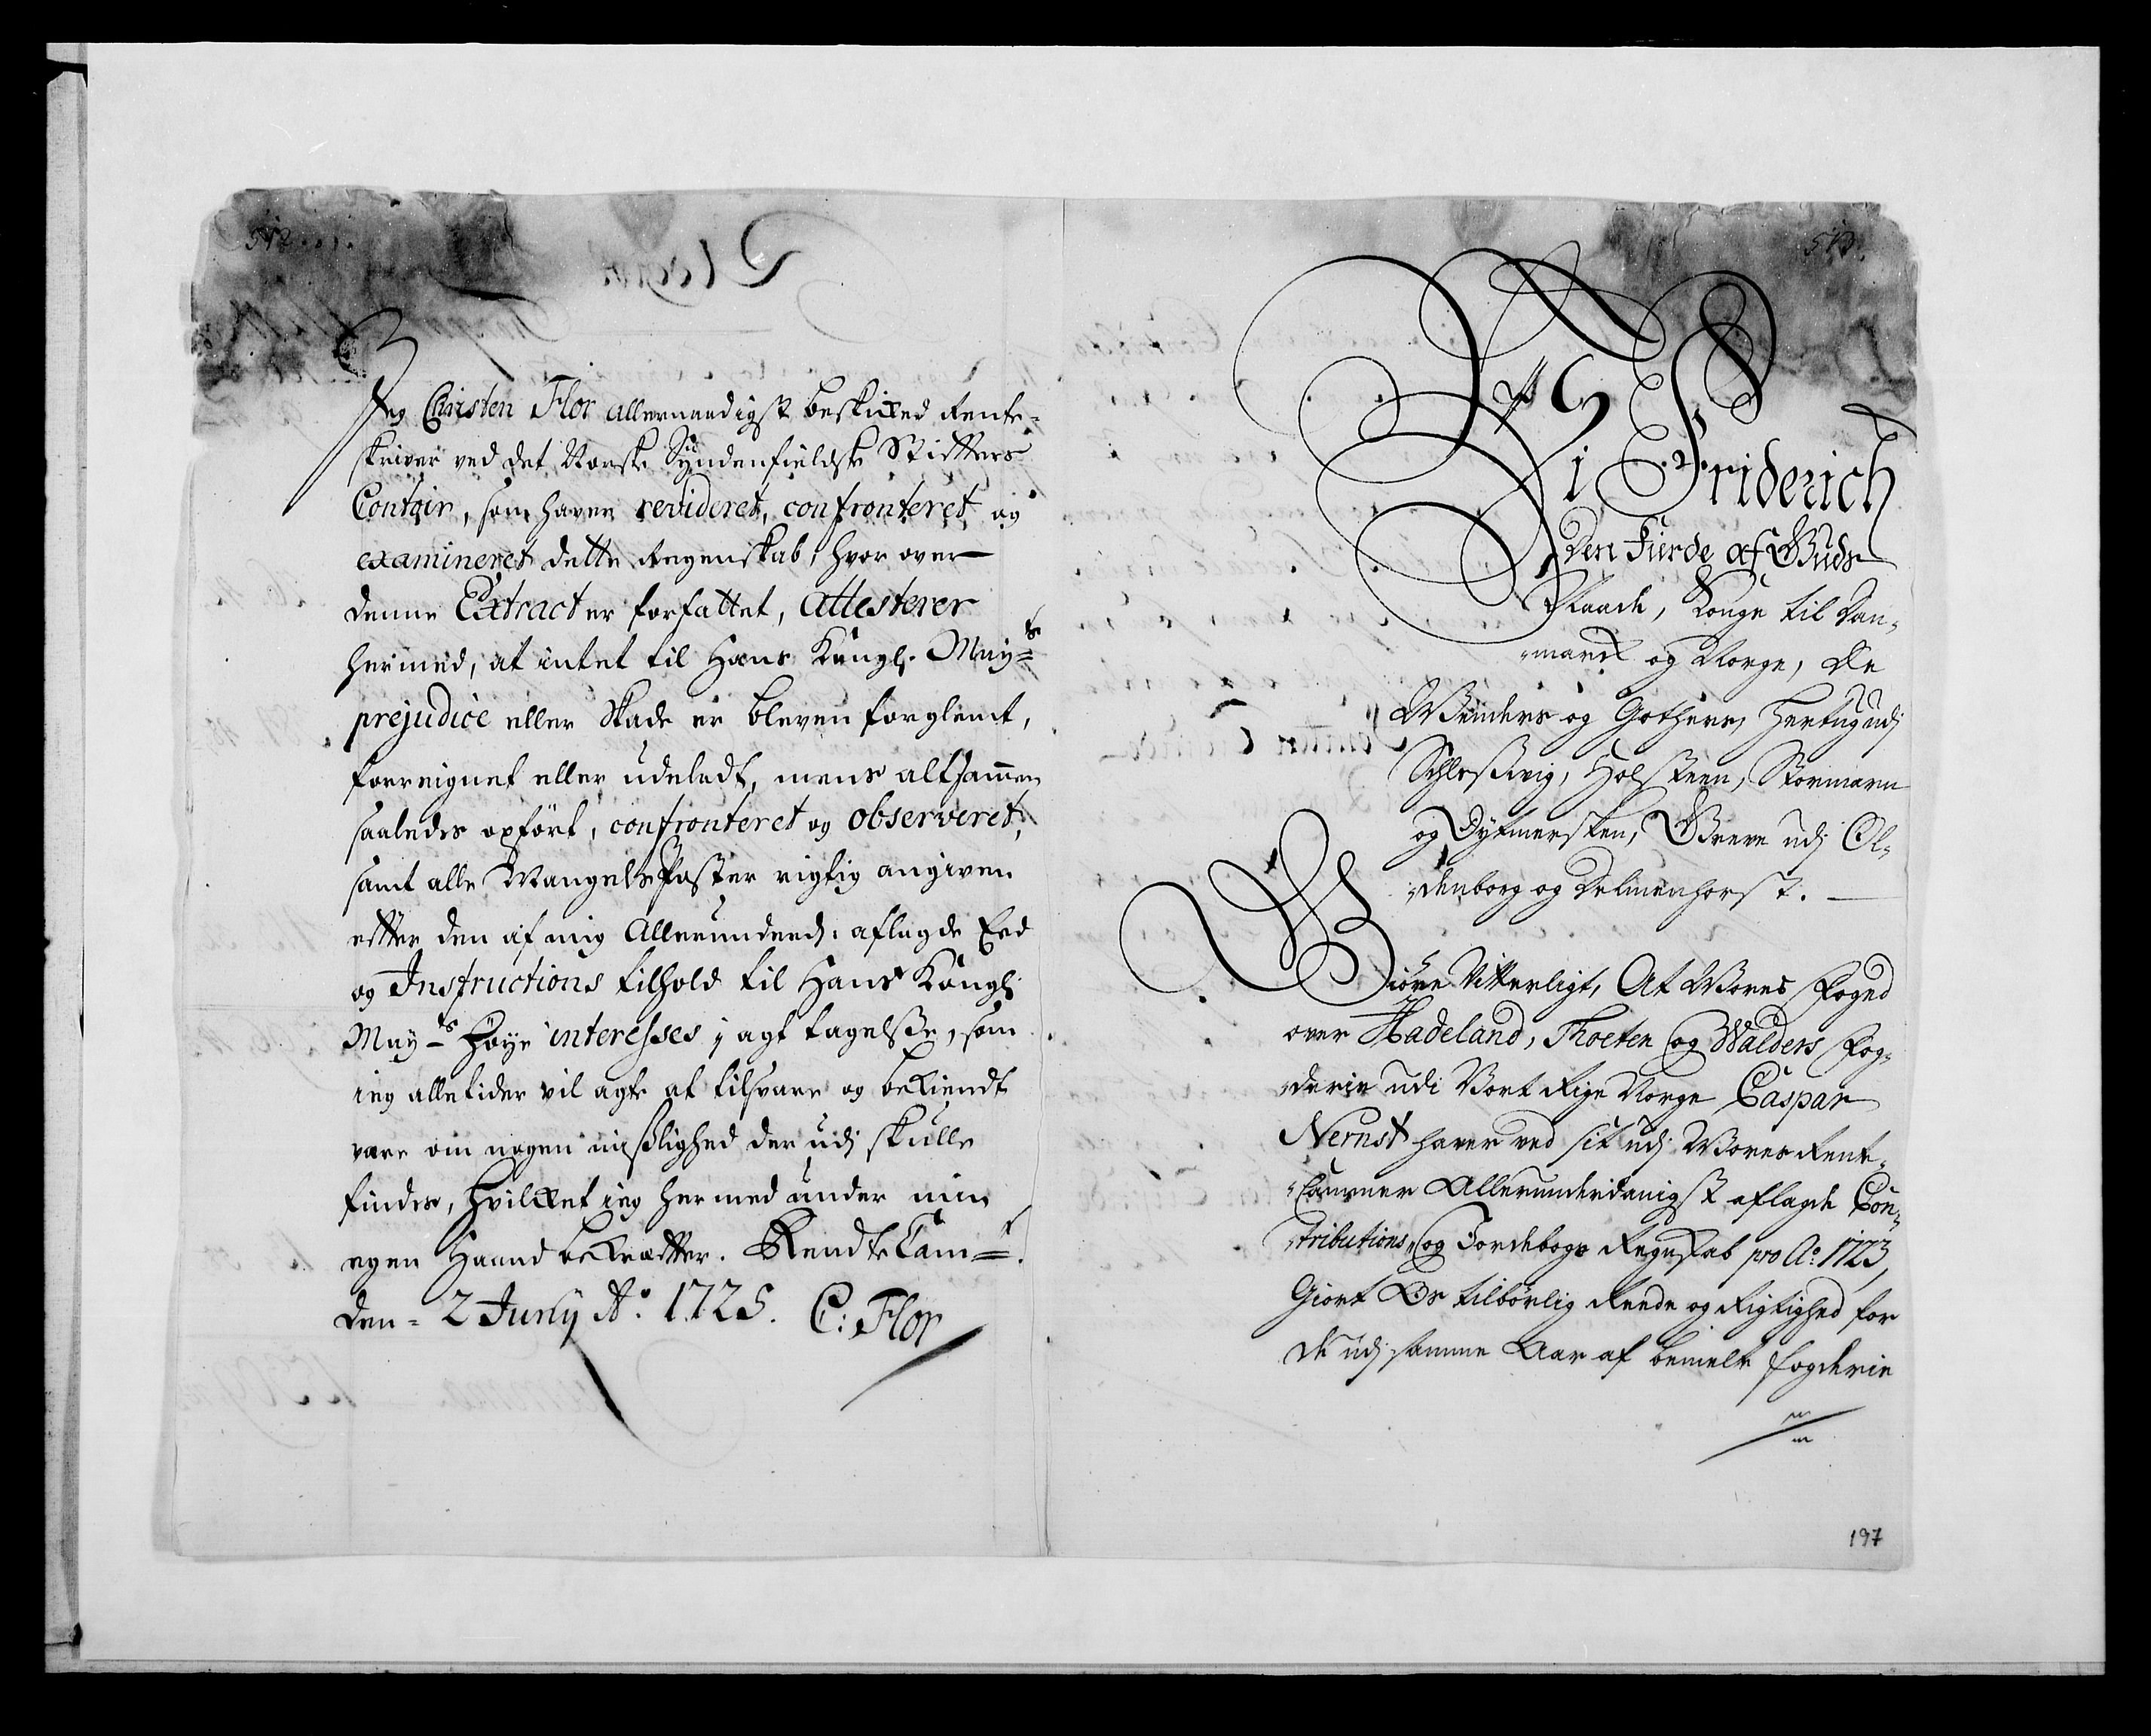 512.
Jeg Christen Flor allernaadigst beskikked Rente-
skriver ved det Norske Syndenfieldske Stifters
Contoir, som haver revideret, confronteret og
examineret dette Regenskab, hvor over
denne Extract er forfattet, Attesterer
hermed, at intet til Hans Kongl. May=ts
prejudice eller Skade er bleven forglemt,
forreignet eller udeladt, mens altsammen
saaledes opført, confronteret og observeret,
samt alle Mangels Poster rigtig angiven
efter den af mig Allerunderd: aflagde Eed
og Instructions tilhold til Hans Kongl:
May=ts Høye interesses j agt tagelsse, som
ieg alletider vil agte at tilsvare og bekiendt
være om nogen misslighed der udj skulle
findes, hvilket ieg hermed under min
egen Haand bekræfter. RendteCam=r.
den = 2 Junij Ao. 1725. C: Flor
513.
Vi Friderich
Den Fierde af Guds
Naade, Konge til Dan-
-mark og Norge, de
Wenders og Gothers, Hertug udj
Schleswig, Holsteen, Stormarn
og Dytmersken, Greve udj Ol-
-denborg og Delmenhorst.
Giøre Vitterligt, At Wores Foged
over Hadeland, Thoten og Walders Fog-
-derie udi Vort Rige Norge Caspar
Nernst haver ved sit udj Wores Rente-
-Cammer Allerunderdanigst aflagde Con-
-tributions- og Jordebogs Regnskab pro Ao. 1723,
Giort Os tilbørlig Reede og Rigtighed for
de udj samme Aar af bemelte Fogderie
197